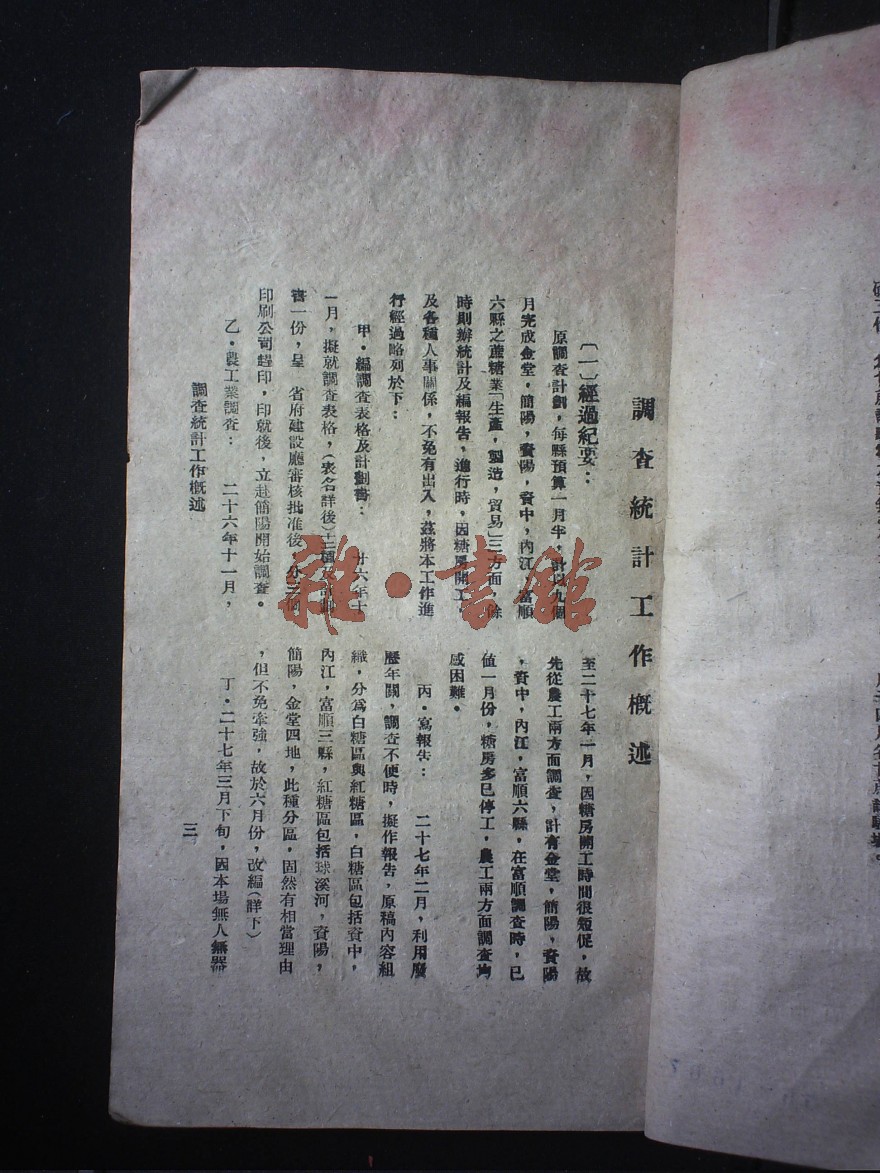 調查統計工作概述
〔一〕經過紀要：
原調查計劃，每縣預算一月半，計以九個
月完成金堂，簡陽，資陽，資中，內江，富順
六縣之蔗糖業「生產，製造，貿易」三方面，餘
時則辦統計及編報告，進行時，因糖房開工，
及各種人事關係，不免有出入，茲將本工作進
行經過略列於下：
甲·編調查表格及計劃書： 廿六年十
一月，擬就調查表格，（表名詳後）十二種及計劃
書一份，呈 省府建設廳審核批准後，分
印刷公司趕印，印就後，立赴簡陽開始調查。
乙·農工業調查： 二十六年十一月，
至二十七年一月，因糖房開工時間很短促，故
先從農工兩方面調查，計有金堂，簡陽，資陽
，資中，內江，富順六縣，在富順調查時，已
值一月份，糖房多已停工，農工兩方面調查均
感困難。
丙·寫報告： 二十七年二月，利用廢
歷年關，調查不便時，擬作報告，原稿內容組
織，分為白糖區與紅糖區，白糖區包括資中，
內江，富順三縣，紅糖區包括球溪河，資陽，
簡陽，金堂四地，此種分區，固然有相當理由
，但不免牽強，故於六月份，改編（詳下）
丁·二十七年三月下旬，因本場無人無器
調查統計工作概述
三
雜·書館